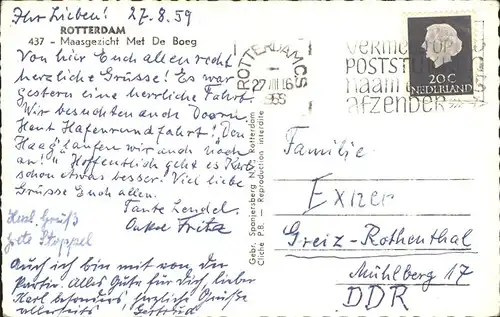 Ihr Lieben! 27.8.59
ROTTERDAM
437 - Maasgezicht Met De Boeg
Von hier Euch allen recht
herzliche Grüsse! Es war
gestern eine herrliche Fahrt.
Wir besuchten auch Doorn
Heut Hafenrundfahrt! Den
Haag laufen wir auch noch
an! Hoffentlich geht es Karl
schon etwas besser! Viel liebe
Grüsse Euch allen.
Tante Lendel
Onkel Fritz
Herzl. Gruß
Grete Stoppel
Auch ich bin mit von der
Partie. Alles Gute für Dich, lieber
Karl besonders, herzliche Grüsse
allerseits Gertrud
Gebr. Spanjersberg N.V., Rotterdam
Cliché P.B. — Reproduction interdite
ROTTERDAM CS
27 VIII 16
POSTST
naam
afzender
20 C
NEDERLAND
Familie
Exner
Greiz-Rothenthal
Mühlberg 17
DDR